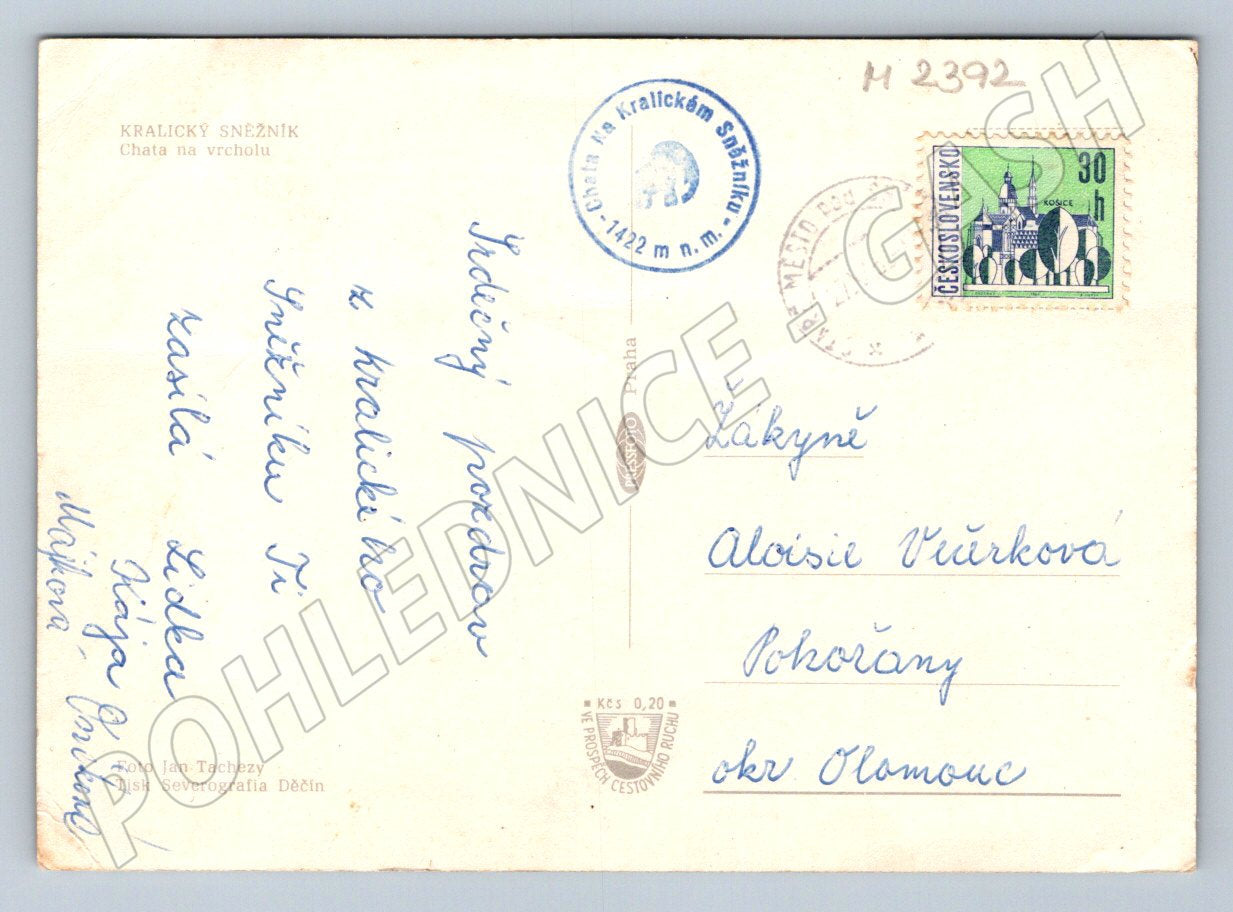 M 2392
KRALICKÝ SNĚŽNÍK
Chata na vrcholu
Chata Na Kralickém Sněžníku
- 1422 m n. m. -
ČESKOSLOVENSKO
30 h
KOŠICE
STARÉ MĚSTO POD
Srdečný pozdrav
z Kralického
Sněžníku Ti
zasílá Lidka
Kája
Majkova
PRESSFOTO Praha
Žákyně
Aloisie
Pokořany
okr Olomouc
Kčs 0,20
VE PROSPĚCH CESTOVNÍHO RUCHU
Foto Jan Tachezy
Tisk Severografia Děčín
POHLEDNICE - GASH